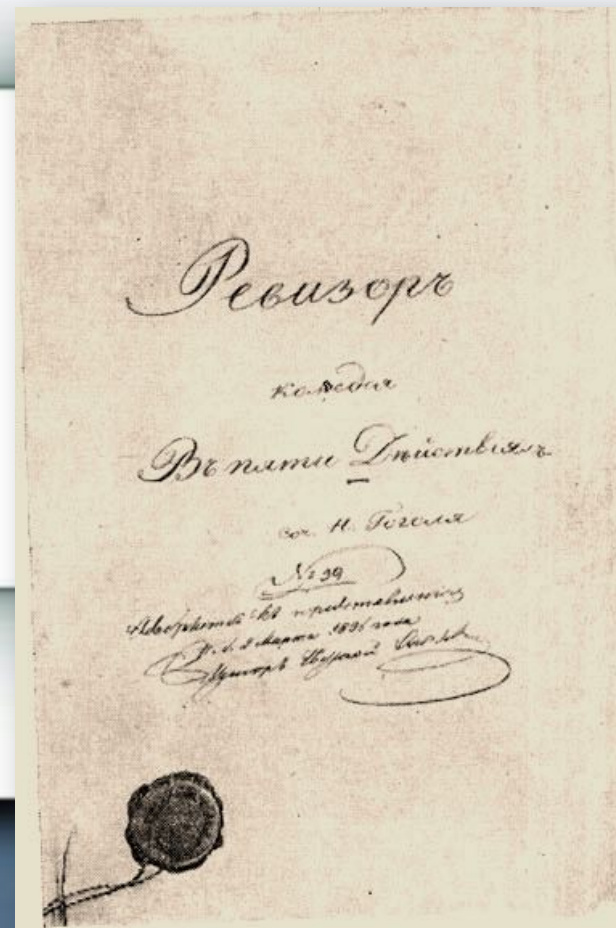 Ревизоръ
комедия
Въ пяти Дѣйствіяхъ
соч. Н. Гоголя
№ 39
къ представленію
2 Марта 1836 года
Ценсоръ